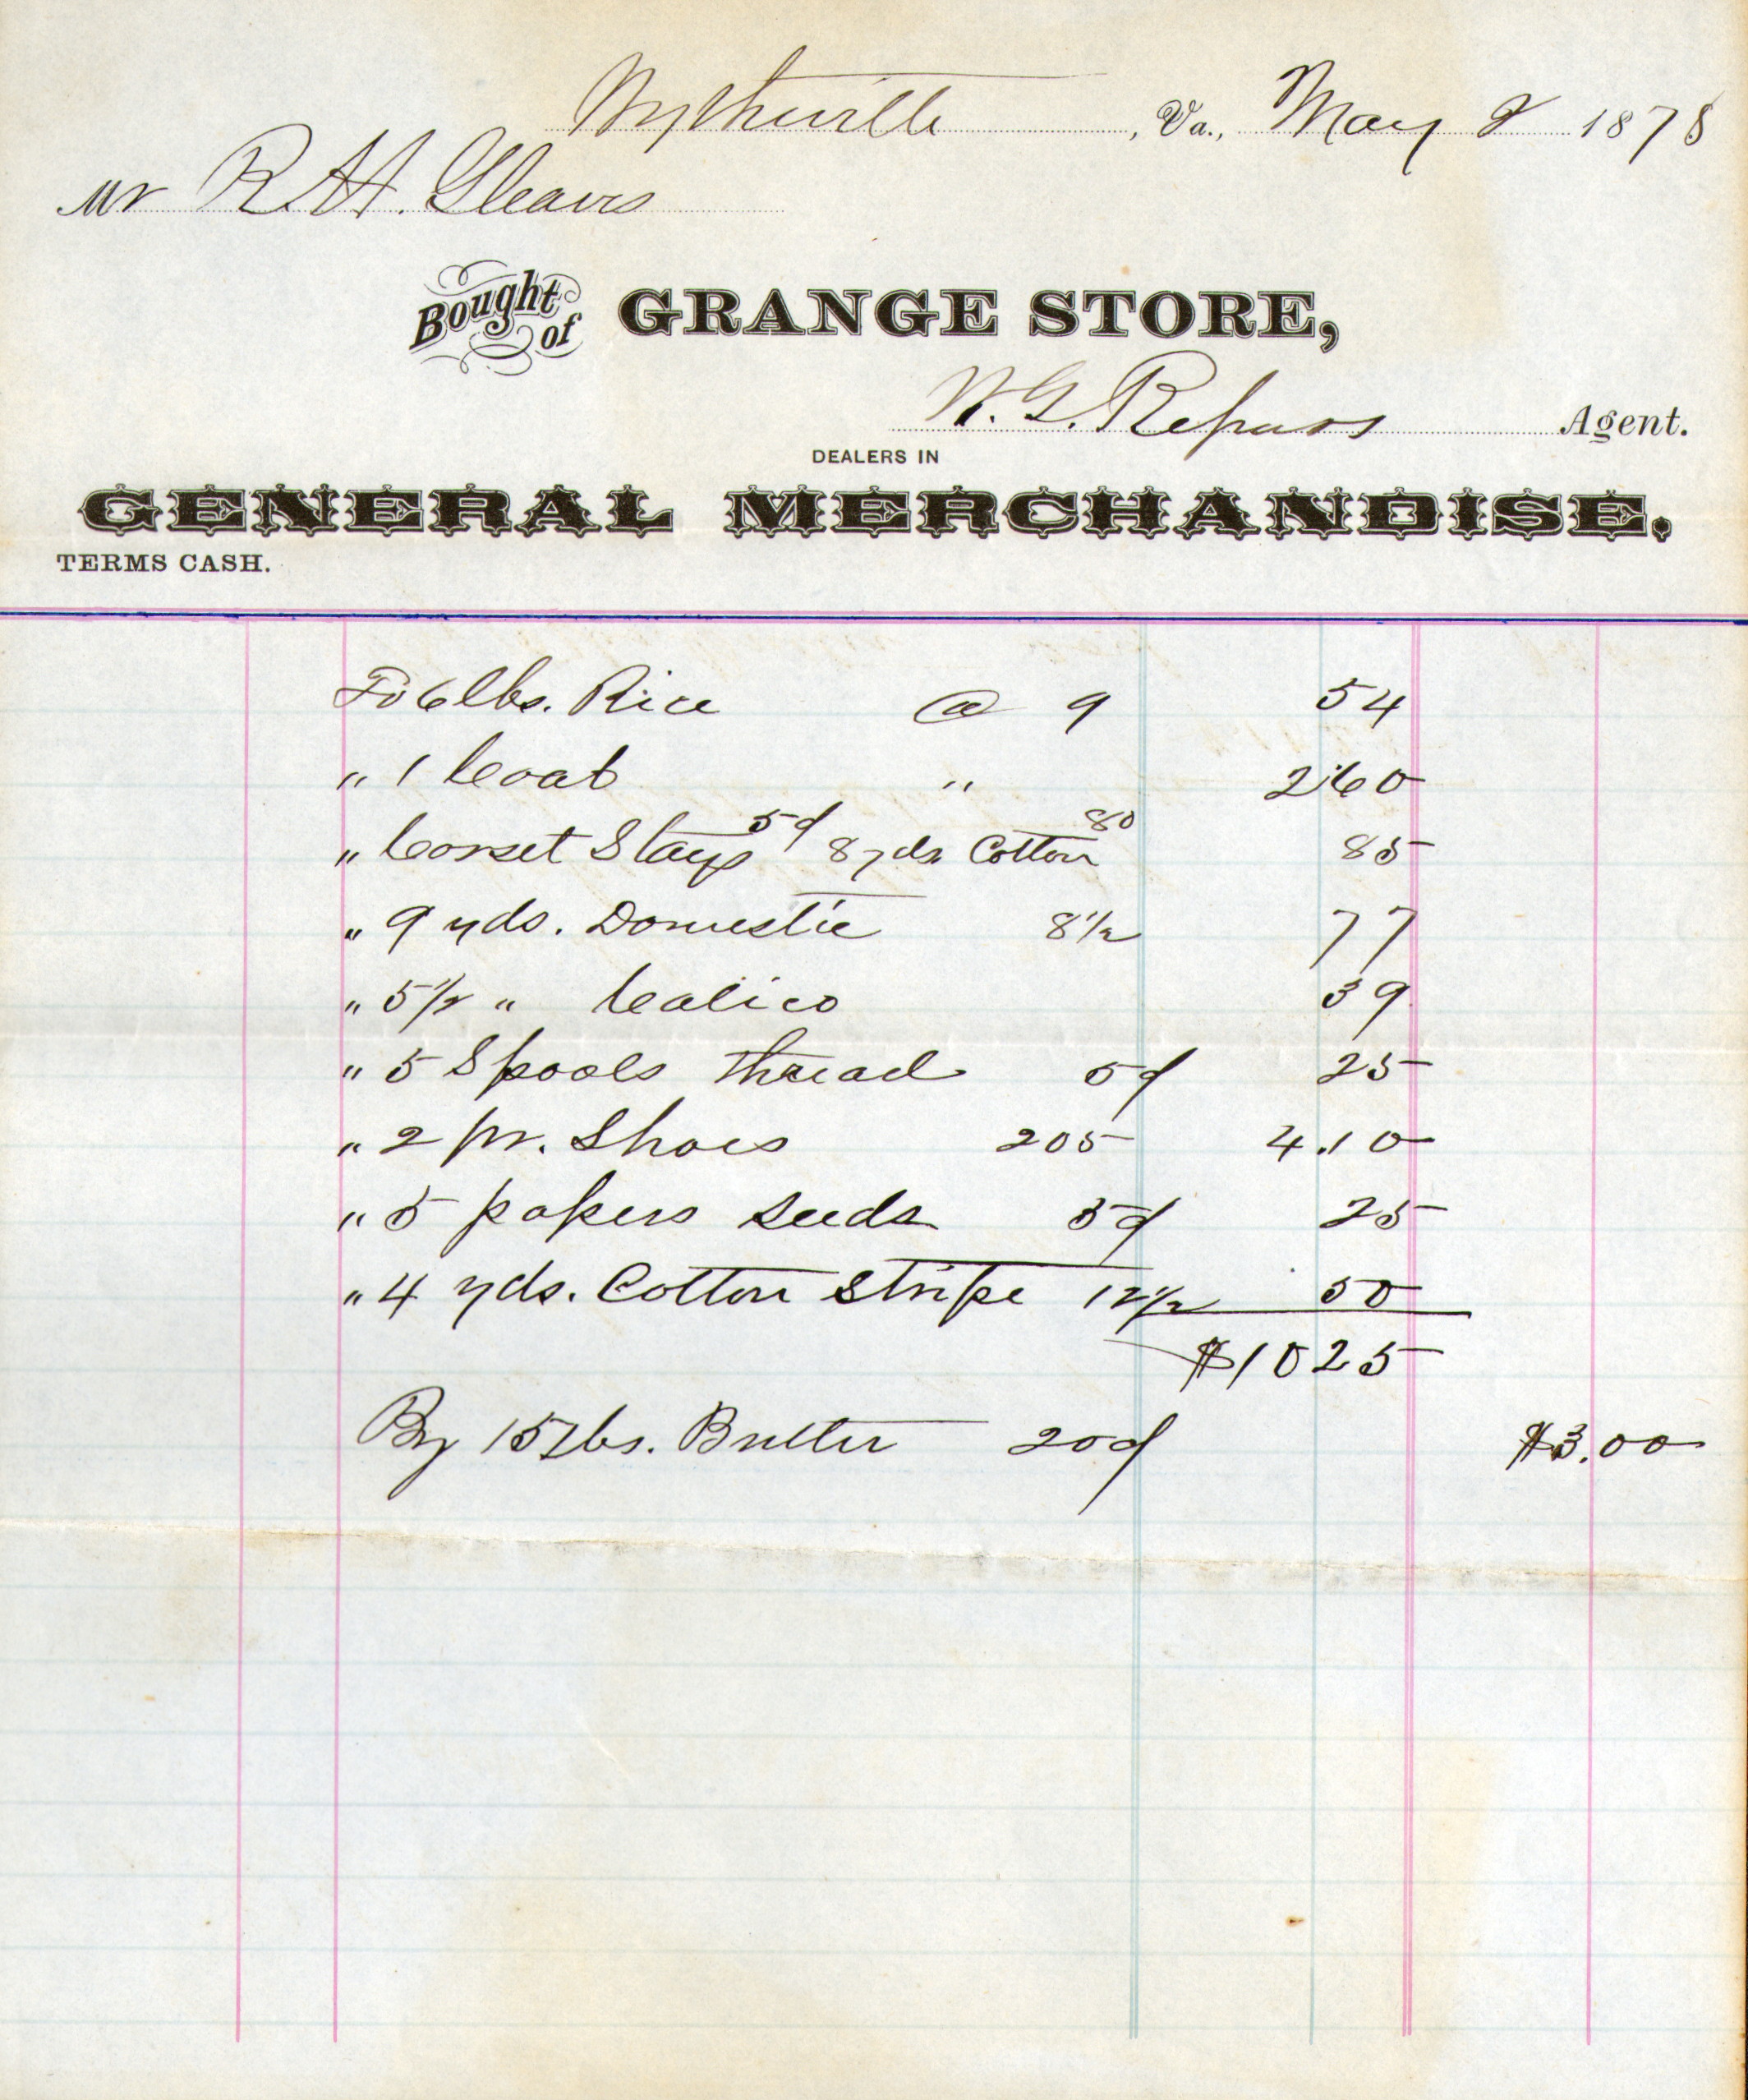 Wytheville, Va., May 2 1878
Mr R. H. Gleaves
Bought of GRANGE STORE,
W. G. Repass Agent.
DEALERS IN
GENERAL MERCHANDISE.
TERMS CASH.
To 6 lbs. Rice @ 9 54
" 1 Coat " 2.60
" Corset Stays 5¢ 8 yds Cotton 80 85
" 9 yds. Domestic 8 1/2 77
" 5 1/2 " Calico 39
" 5 Spools thread 5¢ 25
" 2 pr. Shoes 205 4.10
" 5 papers seeds 5¢ 25
" 4 yds. Cotton Stripe 12 1/2 50
$10 25
By 15 lbs. Butter 20¢ $3.00